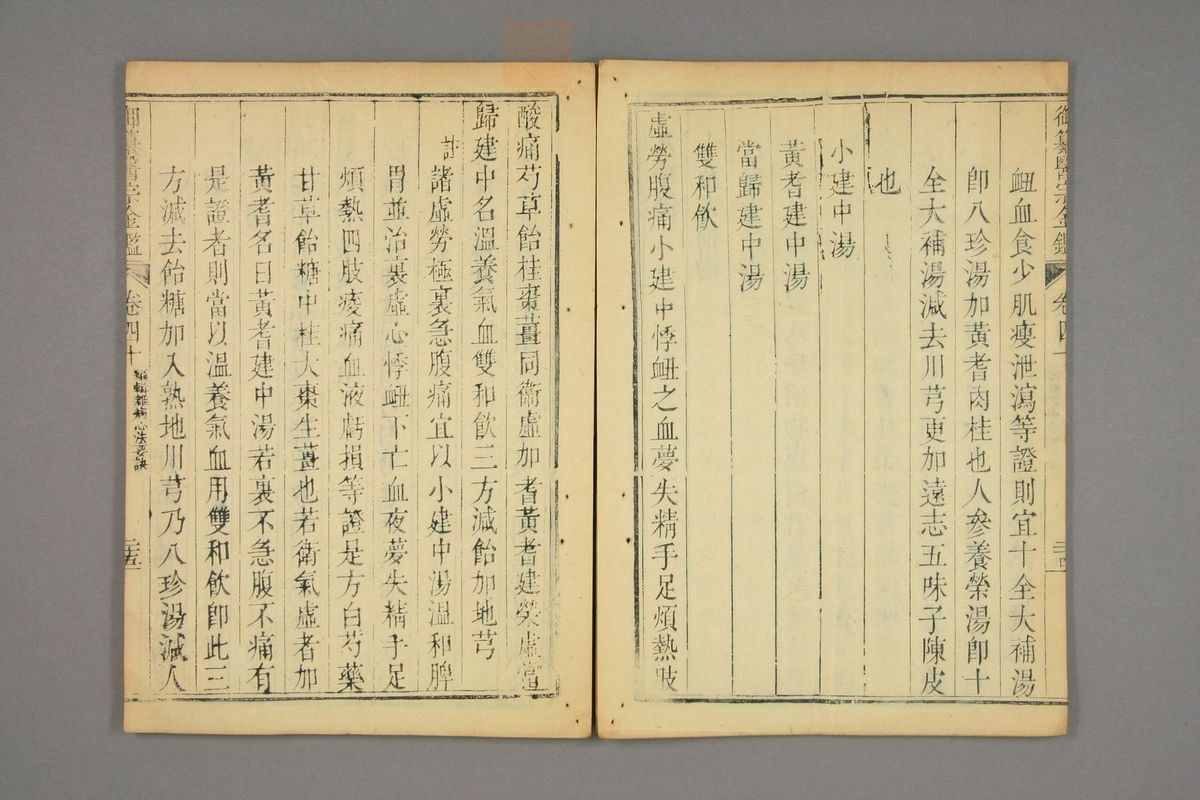 御纂醫宗金鑑 卷四十
衄血食少肌瘦泄瀉等證則宜十全大補湯
卽八珍湯加黃耆肉桂也人參養榮湯卽十
全大補湯減去川芎更加遠志五味子陳皮
也
小建中湯
黃耆建中湯
當歸建中湯
雙和飮
虛勞腹痛小建中悸衄之血夢失精手足煩熱肢
酸痛芍草飴桂棗薑同衞虛加耆黃耆建榮虛當
歸建中名溫養氣血雙和飮三方減飴加地芎
註
諸虛勞極裏急腹痛宜以小建中湯溫和脾
胃並治裏虛心悸衄下亡血夜夢失精手足
煩熱四肢痠痛血液虧損等證是方白芍藥
甘草飴糖中桂大棗生薑也若衞氣虛者加
黃耆名曰黃耆建中湯若裏不急腹不痛有
是證者則當以溫養氣血用雙和飮卽此三
方減去飴糖加入熟地川芎乃八珍湯減人
御纂醫宗金鑑 卷四十 編輯雜病心法要訣 三五